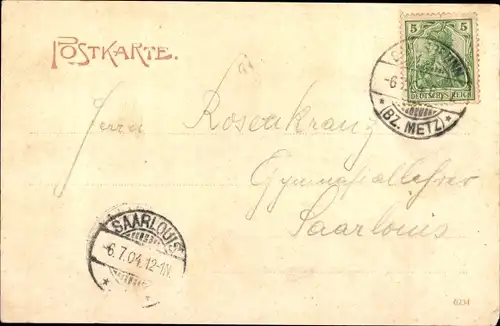 POSTKARTE.
5 5
DEUTSCHES REICH
-6.7.
*(BZ. METZ)*
Herrn Rosenkranz
Gymnasiallehrer
Saarlouis
SAARLOUIS
-6.7.04.12-1N.
* *
6234